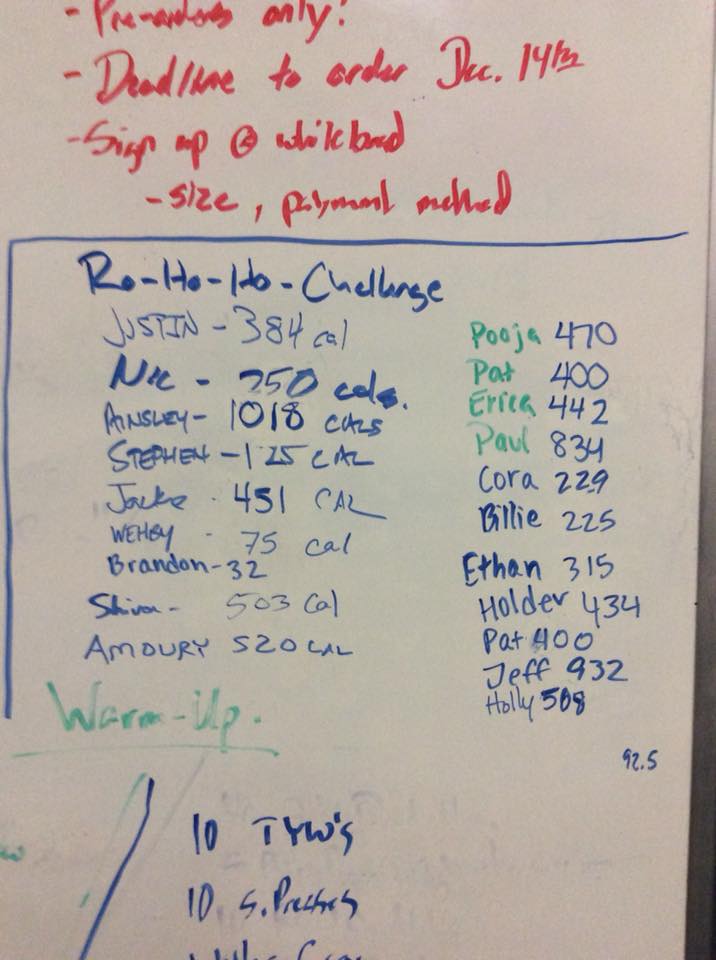 - Pre-orders only!
- Deadline to order Dec. 14th
- Sign up @ whiteboard
- size, payment method
Ro-Ho-Ho-Challenge
JUSTIN - 384 cal
Nic - 250 cals.
AINSLEY - 1018 CALS
STEPHEN - 125 CAL
Jacke - 451 CAL
WEHBY - 75 cal
Brandon - 32
503 Cal
AMOURY 520 CAL
Pooja 470
Pat 400
Erica 442
Paul 834
Cora 229
Billie 225
Ethan 315
Holder 434
Pat 400
Jeff 932
Holly 508
92.5
Warm-Up.
10 TYW's
10 S. Presses